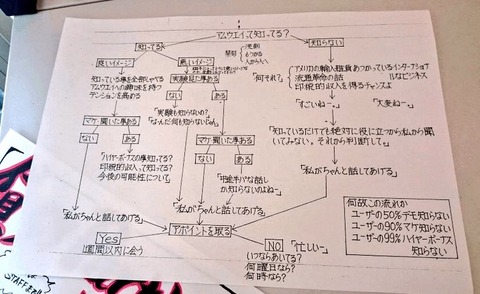 アムウェイって知ってる?
知ってる
知らない
良いイメージ
悪いイメージ
知っている事を全部しゃべる
アムウェイへの興味を持つ
テンションを高める
実験見た事ある
ない
ある
「実験も知らないの?
「なんだ何も知らないじゃん
マケ聞いた事ある
ない
ある
「ハイヤーボーナスの事知ってる?
印税的収入って知ってる?
今後の可能性について」
マケ聞いた事ある
ない
ある
「中途半パな話し
か知らないのよねー」
「私がちゃんと話してあげる」
「私がちゃんと話してあげる」
「何それ?」
アメリカの輸入雑貨あつかっているインターナショナ
ルなビジネス
流通革命の話
印税的収入を得るチャンスよ
「すごいねー」
「大変ねー」
「知っているだけでも絶対に役に立つから私から聞
いてみない。それから判断して」
「私がちゃんと話してあげる」
アポイントを取る
Yes
1週間以内に会う
NO
「忙しい」
いつならあいてる?
何曜日なら?
何時なら?
何故この流れか
ユーザーの50%デモ知らない
ユーザーの90%マケ知らない
ユーザーの99%ハイヤーボーナス
知らない